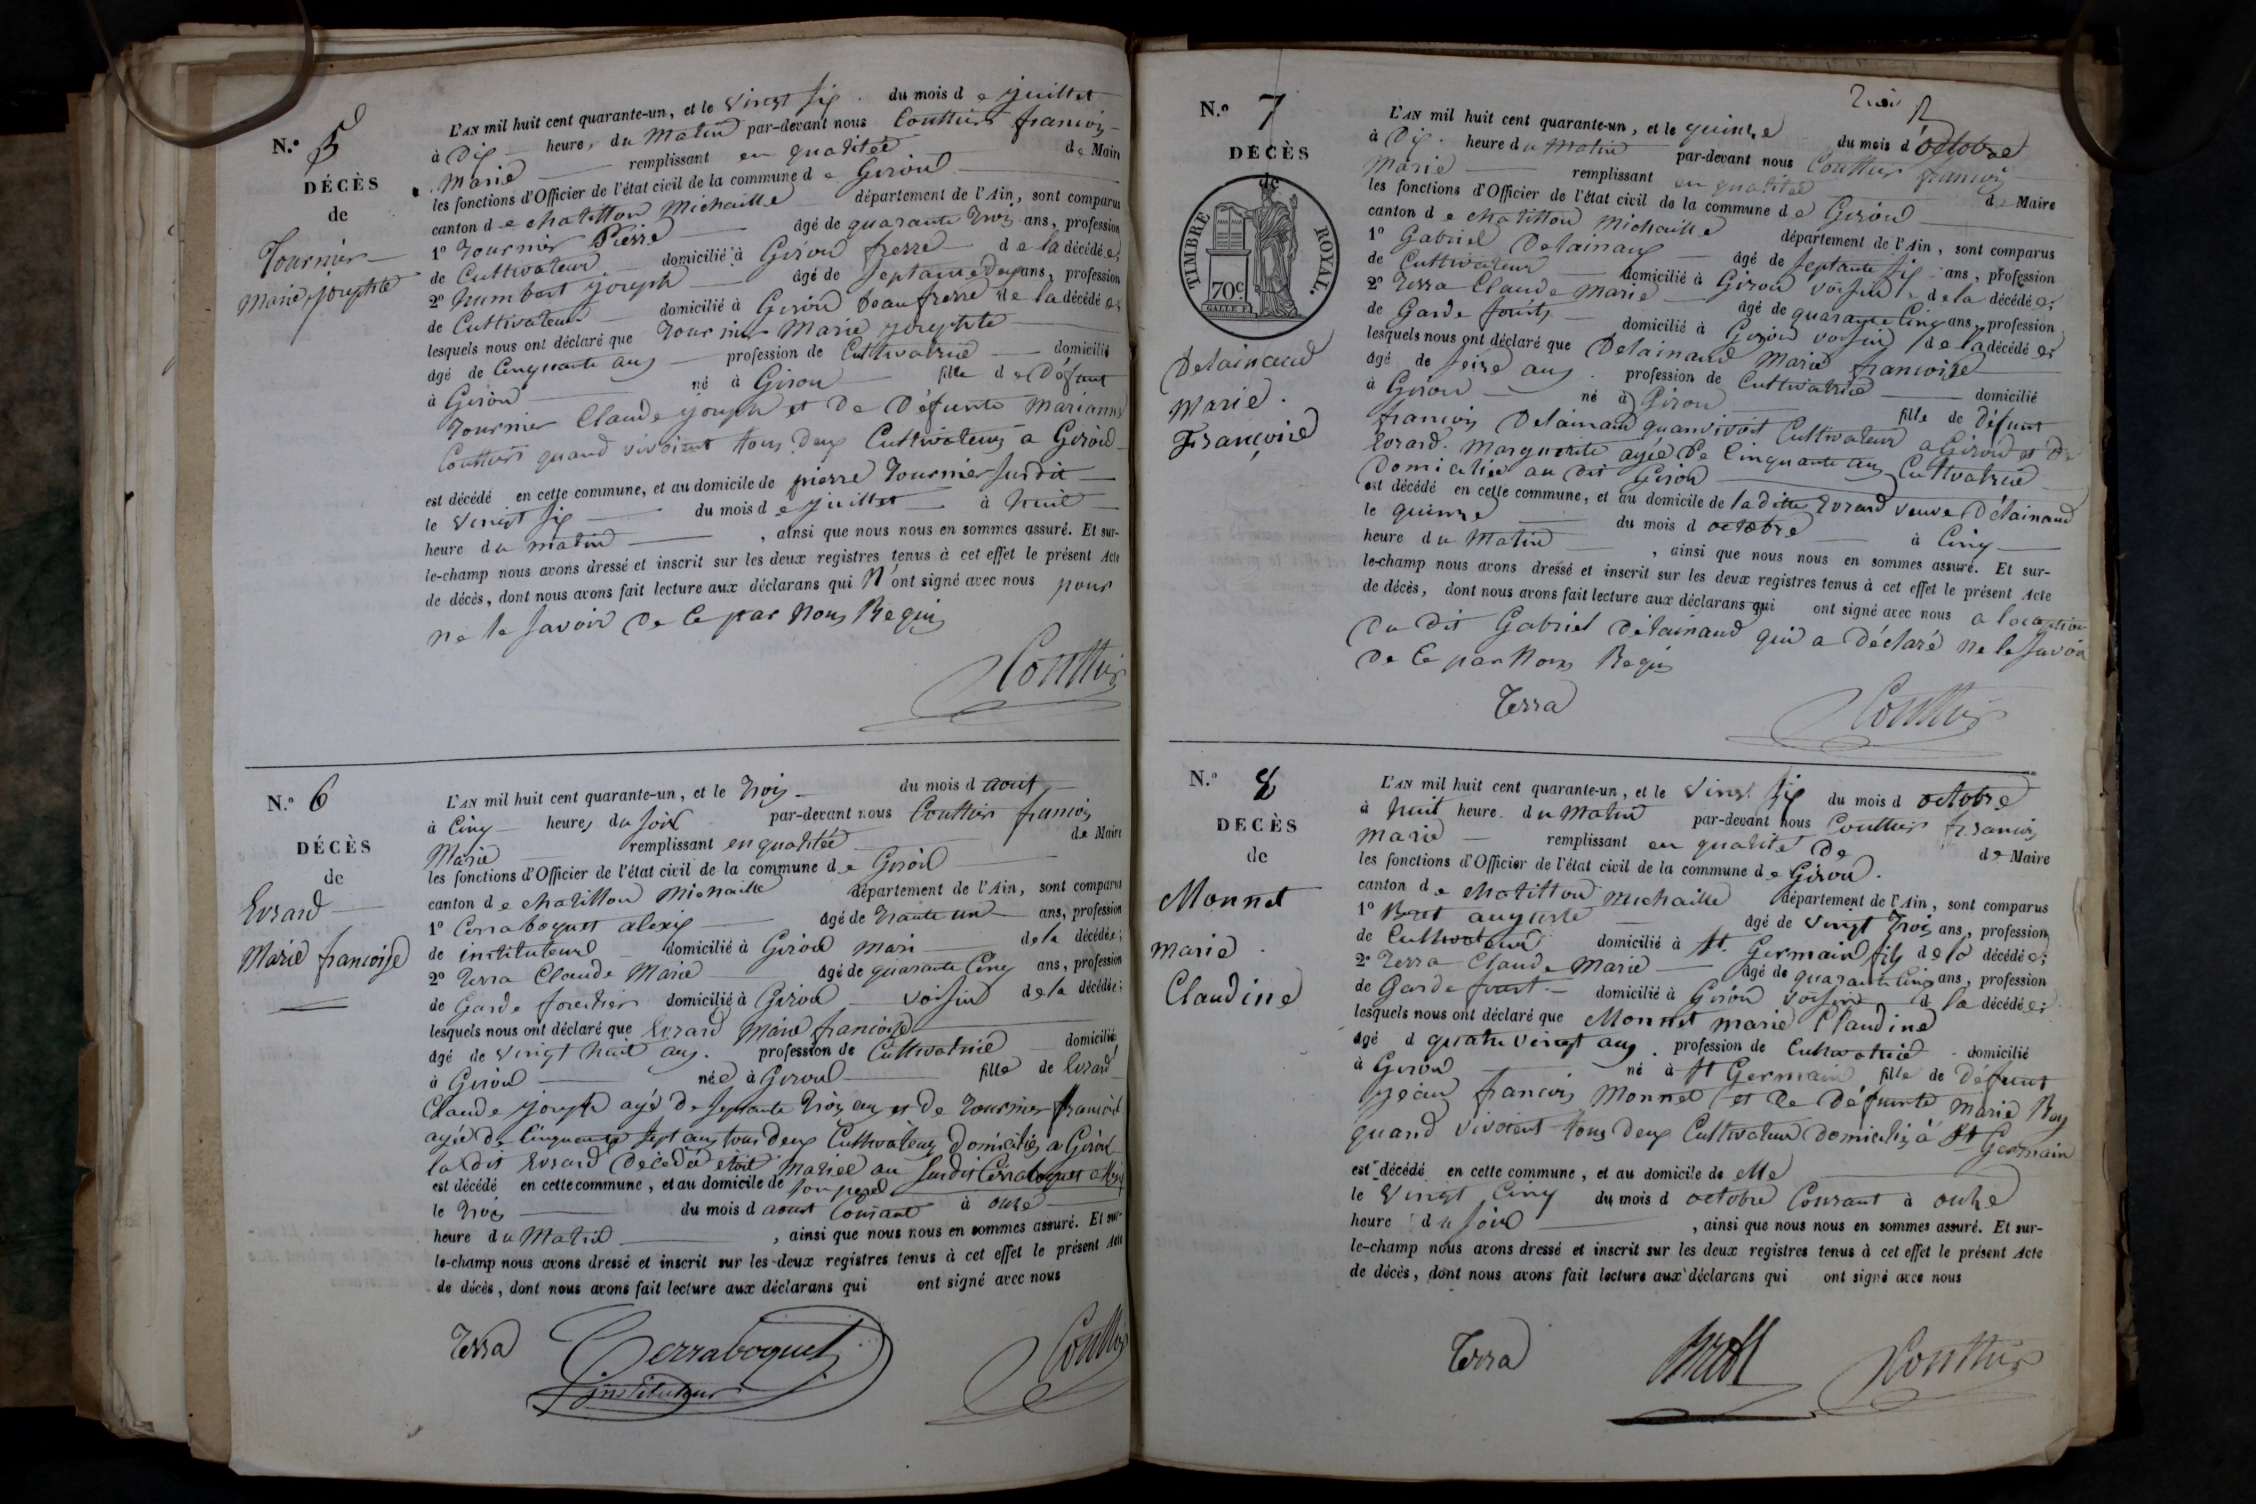 N.º 5
DÉCÈS
de
Tournier
Marie josephte
L'AN mil huit cent quarante-un, et le vingt six du mois de juillet
à Dix heures du Matin par-devant nous Couttier françois
Marie remplissant en qualitée de Maire
les fonctions d'Officier de l'état civil de la commune de Giron
canton de chatillon Michaille département de l'Ain, sont comparus
1º Tournier Pierre âgé de quarante Trois ans, profession
de Cultivateur domicilié à Giron frerre de la décédée;
2º humbert joseph âgé de septante Deux ans, profession
de Cultivateur domicilié à Giron beaufrerre de la décédée;
lesquels nous ont déclaré que Tournier Marie josephte
âgé de Cinquante ans profession de Cultivatrice domicilié
à Giron né à Giron fille de Défunt
Tournier Claude joseph et De Défunte Marianne
Couttier quand vivoient tous Deux Cultivateurs a Giron
est décédé en cette commune, et au domicile de pierre Tournier susdit
le vingt six du mois de juillet à huit
heure du matin , ainsi que nous nous en sommes assuré. Et sur-
le-champ nous avons dressé et inscrit sur les deux registres tenus à cet effet le présent Acte
de décès, dont nous avons fait lecture aux déclarans qui N'ont signé avec nous pour
ne le savoir De Ce par Nous Requis
Couttier
N.º 6
DÉCÈS
de
Evrard
Marie francoise
L'AN mil huit cent quarante-un, et le Trois du mois d aout
à Cinq heures du soir par-devant nous Couttier francois
Marie remplissant en qualitée de Maire
les fonctions d'Officier de l'état civil de la commune de Giron
canton de chatillon Michaille département de l'Ain, sont comparus
1º Cerraboquet alexis âgé de Trante un ans, profession
de instituteur domicilié à Giron mari de la décédée;
2º Terra Claude Marie âgé de quarante Cinq ans, profession
de Garde forestier domicilié à Giron voisin de la décédée;
lesquels nous ont déclaré que Evrard Marie francoise
âgé de vingt huit ans. profession de Cultivatrice domicilié
à Giron née à Giron fille de Evrard
Claude joseph agé De septante Trois ans et de Tournier francoise
agée De Cinquante sept ans tous Deux Cultivateurs Domiciliés a Giron
la dit Evrard Décédée etoit Mariee au susdit Cerraboquet alexis
est décédé en cette commune, et au domicile de son pere
le Trois du mois d aoust Courant à onze
heure du Matin , ainsi que nous nous en sommes assuré. Et sur-
le-champ nous avons dressé et inscrit sur les deux registres tenus à cet effet le présent Acte
de décès, dont nous avons fait lecture aux déclarans qui ont signé avec nous
Terra Cerraboquet Couttier
instituteur
N.º 7
DÉCÈS
de
TIMBRE ROYAL.
70 c.
Delainaud
Marie.
Françoise
L'AN mil huit cent quarante-un, et le quinze du mois d'octobre
à Dix heure du Matin par-devant nous Couttier francois
Marie remplissant en qualitée de Maire
les fonctions d'Officier de l'état civil de la commune de Giron
canton de chatillon Michaille département de l'Ain, sont comparus
1º Gabriel Delainaud âgé de septante six ans, profession
de Cultivateur domicilié à Giron voisin de la décédée;
2º Terra Claude Marie âgé de quarante Cinq ans, profession
de Garde forêts domicilié à Giron voisin de la décédée;
lesquels nous ont déclaré que Delainaud Marie francoise
âgé de seize ans. profession de Cultivatrice domicilié
à Giron né à Giron fille de défunt
francois Delainaud quanvivoit Cultivateur a Giron et De
Evrard. Marguerite agée De Cinquante ans Cultivatrice
Domiciliée au dit Giron
est décédé en cette commune, et au domicile de la ditte Evrard veuve Délainaud
le quinze du mois d octobre à Cinq
heure du Matin , ainsi que nous nous en sommes assuré. Et sur-
le-champ nous avons dressé et inscrit sur les deux registres tenus à cet effet le présent Acte
de décès, dont nous avons fait lecture aux déclarans qui ont signé avec nous a loception
Du Dit Gabriel Delainaud qui a Déclaré ne le savoir
De Ce par Nous Requis
Terra Couttier
N.º 8
DÉCÈS
de
Monnet
marie.
Claudine
L'AN mil huit cent quarante-un, et le vingt six du mois d octobre
à huit heure du Matin par-devant nous Couttier francois
Marie remplissant en qualité de de Maire
les fonctions d'Officier de l'état civil de la commune de Giron.
canton de chatillon Michaille département de l'Ain, sont comparus
1º Brut auguste âgé de vingt Trois ans, profession
de Cultivateur domicilié à St. Germain fils de la décédée;
2º Terra Claude Marie âgé de quarante Cinq ans, profession
de Garde forest domicilié à Giron voisin de la décédée;
lesquels nous ont déclaré que Monnet marie Claudine
âgé d quatre vingt ans. profession de Cultivatrice domicilié
à Giron né à St Germain fille de Défunt
jean francois Monnet et De Défunte Marie Roy
quand vivoient tous Deux Cultivateur Domiciliés à St Germain
est décédé en cette commune, et au domicile de elle
le vingt Cinq du mois d octobre Courant à onze
heure du soir , ainsi que nous nous en sommes assuré. Et sur-
le-champ nous avons dressé et inscrit sur les deux registres tenus à cet effet le présent Acte
de décès, dont nous avons fait lecture aux déclarans qui ont signé avec nous
Terra Couttier